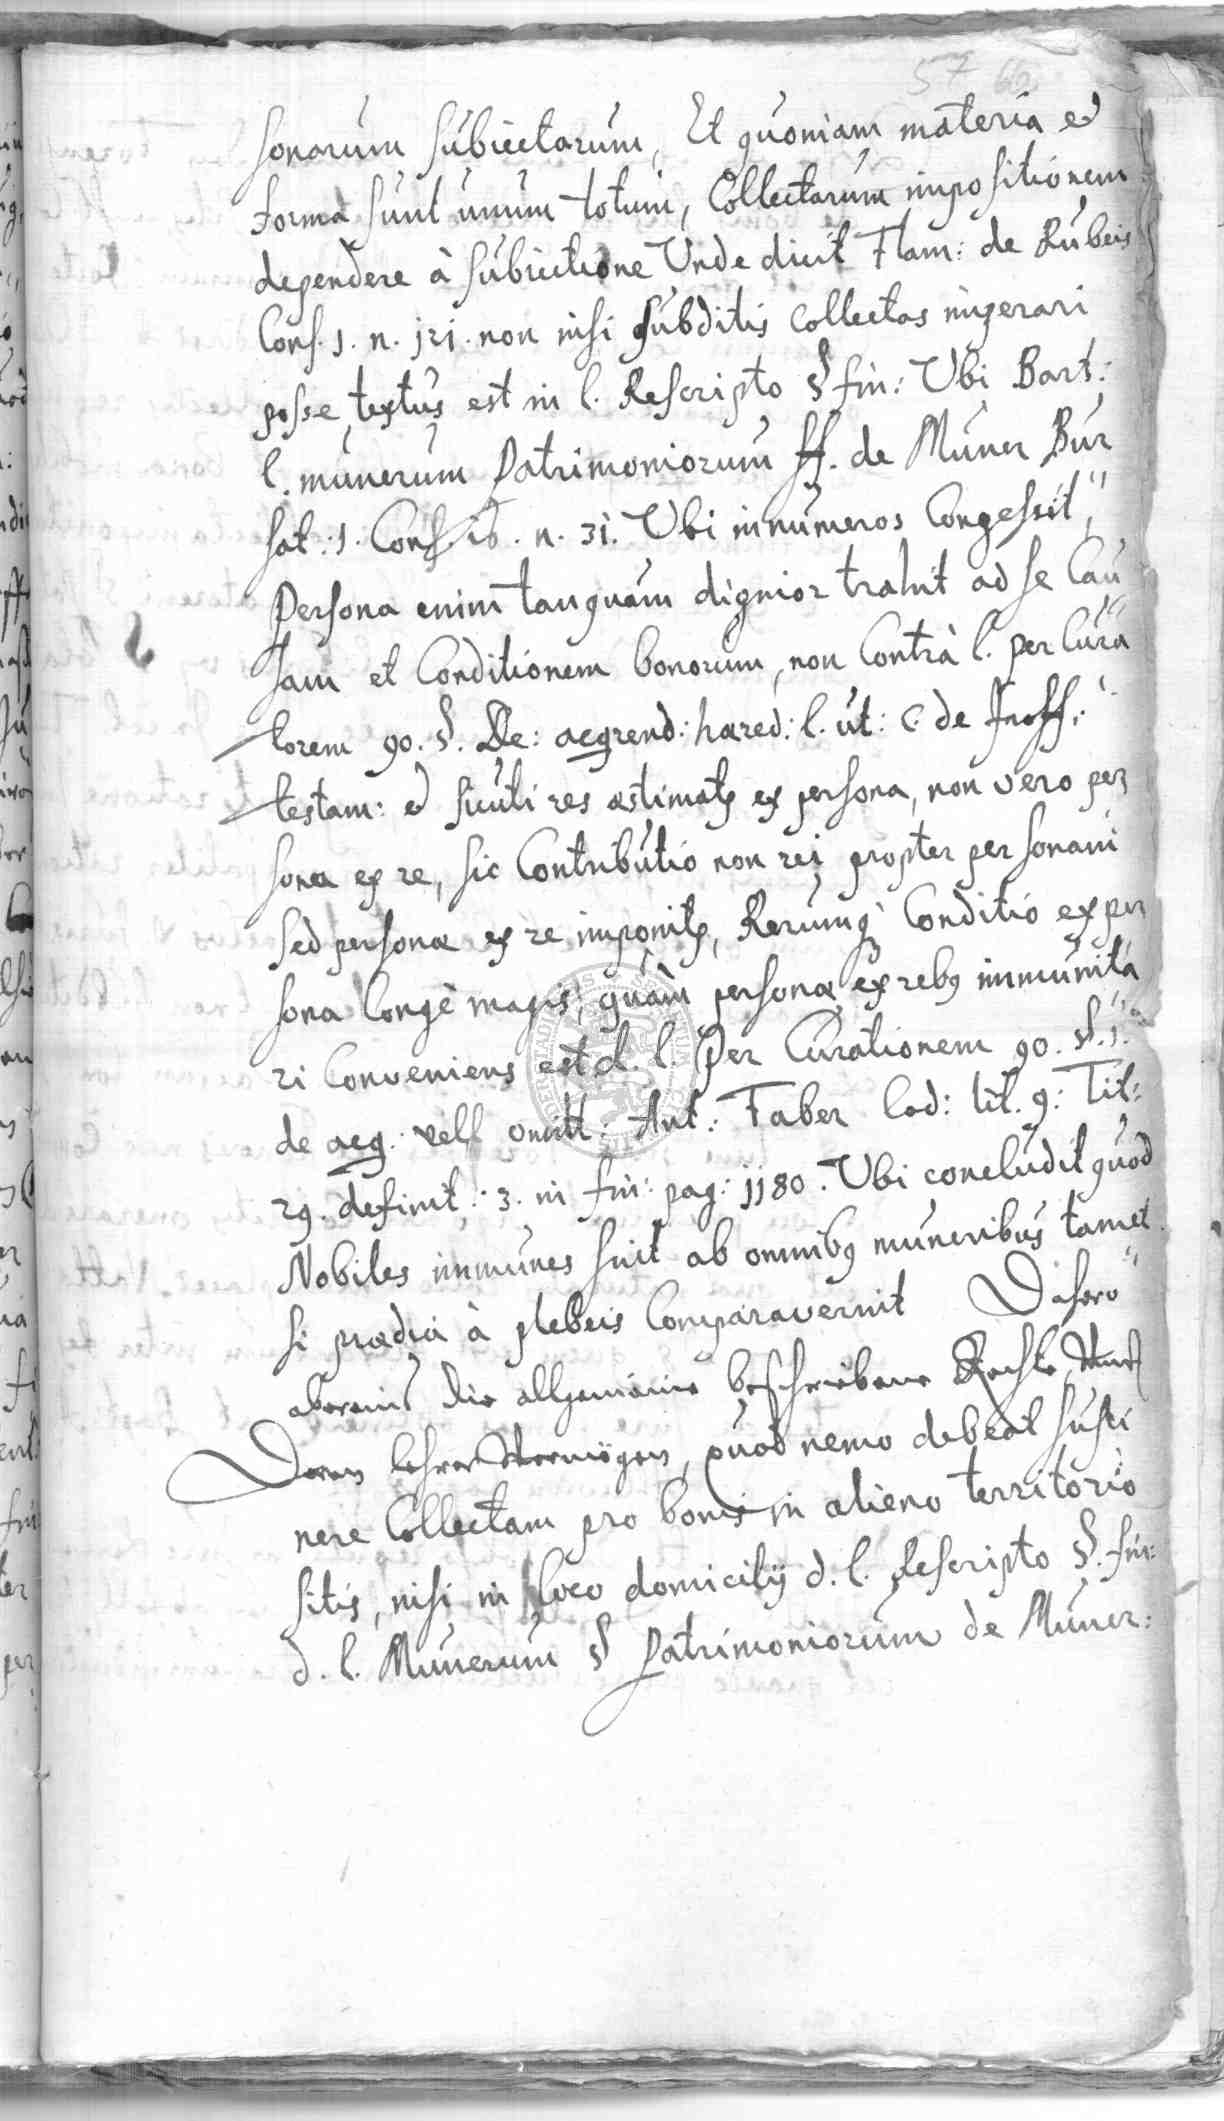 57 66
sonarum subiectarum, Et quoniam materia et
forma sunt unum totum, Collectarum impositionem
dependere à subiectione Unde dicit Flam: de Rubeis
Cons. 1. n. 121. non nisi subditis Collectas imperari
posse, textus est in l. Rescripto § fin: Ubi Bart:
l. munerum Patrimoniorum ff. de Muner Bur
sat: 1. Cons. 16. n. 31. Ubi innumeros Congessit,
Persona enim tanquam dignior trahit ad se Cau
sam et Conditionem bonorum, non Contrà l. per Cura
torem 90. §. De: acqrend: hæred: l. ut: C. de Inoff:
testam: et sicuti res æstimatr ex persona, non vero per
sona ex re, sic Contributio non rei propter personam
sed personæ ex re imponitr, Rerumq Conditio ex per
sona longè magis, quàm personæ ex rebq immunita
ri Conveniens est d. l. Per Curationem 90. §. 1.
de acq: vel omitt: Ant: Faber Cod: lit. 9: Tit:
29. definit: 3. in fin: pag: 1180. Ubi concludit quod
Nobiles immunes sint ab omnibq muneribus tamet
si prædia à plebeis Comparaverint Dafero
aberein die allgemeine beschriebene Rechte
Deren lehrer Vermögen, quod nemo debeat susti
nere Collectam pro bonis in alieno territorio
sitis, nisi in loco domicilij d. l. Rescripto §. fin:
d. l. Munerum § Patrimoniorum de Muner: